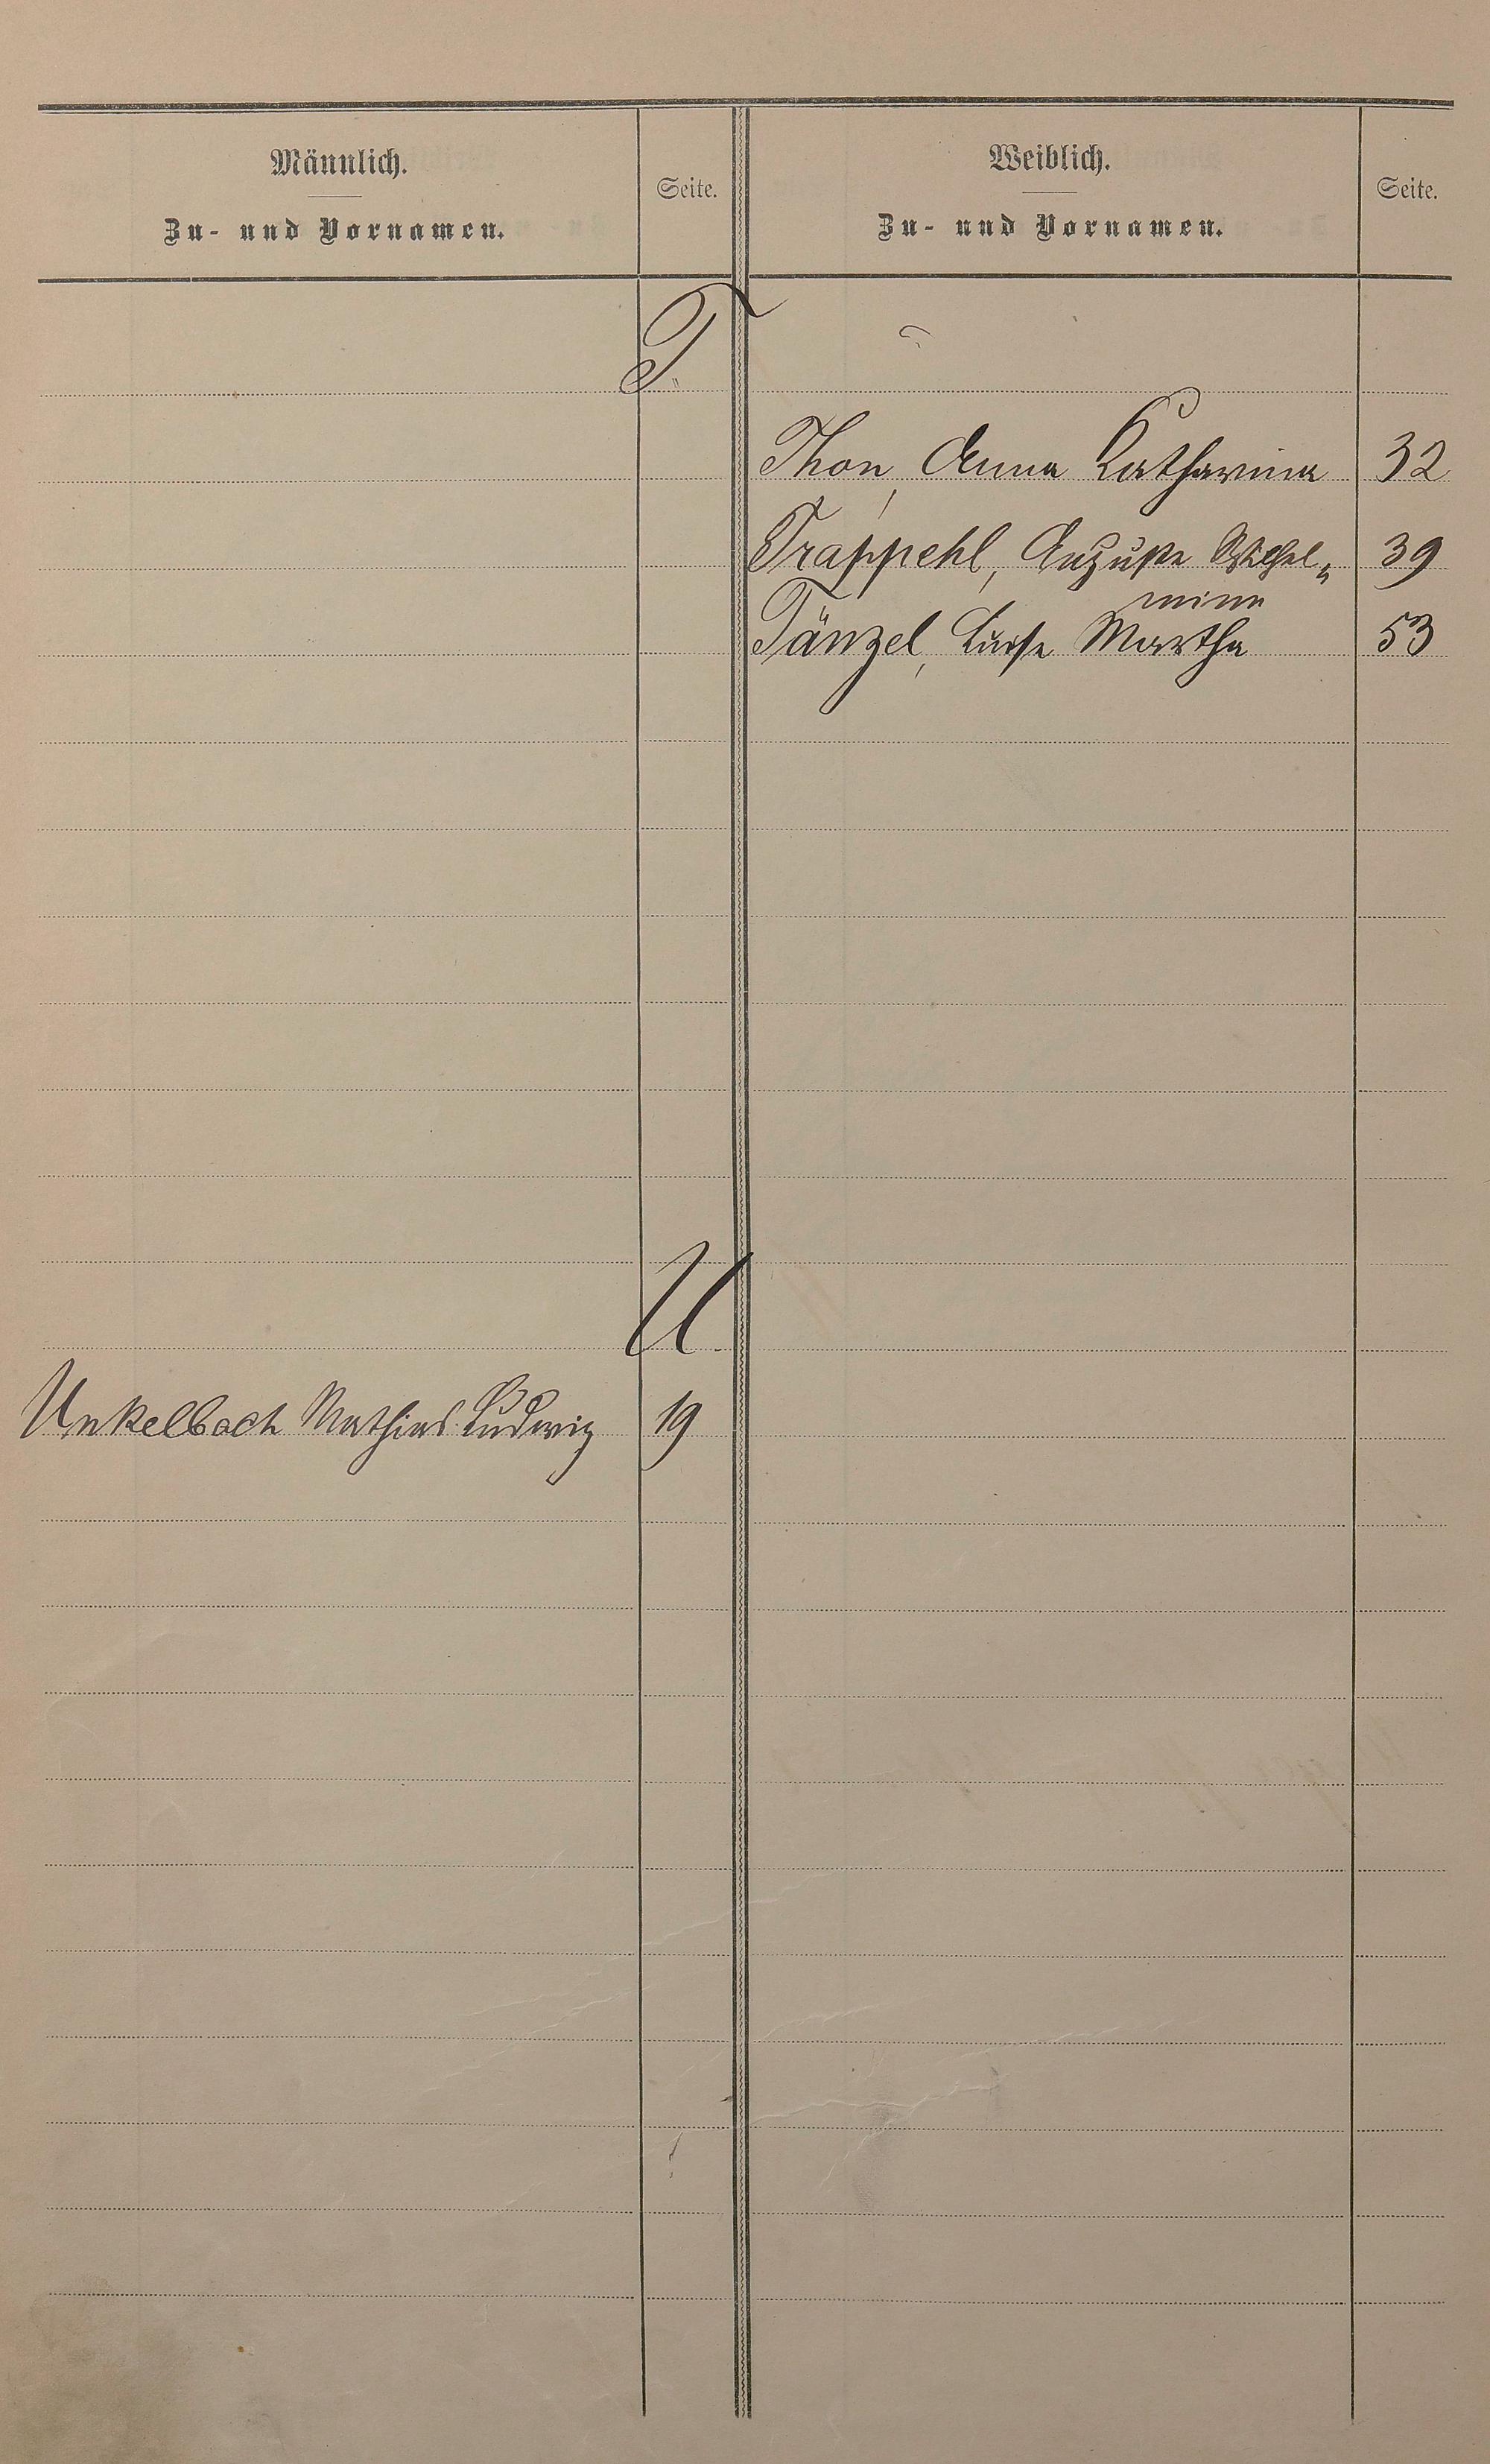 Männlich.
Zu- und Vornamen.
Seite.
Weiblich.
Zu- und Vornamen.
Seite.
T.
Thon, Anna Katharina 32
Trappehl, Auguste Wilhel„ 39
mine
Tänzel, Luise Martha 53
U.
Unkelbach Mathias Ludwig 19